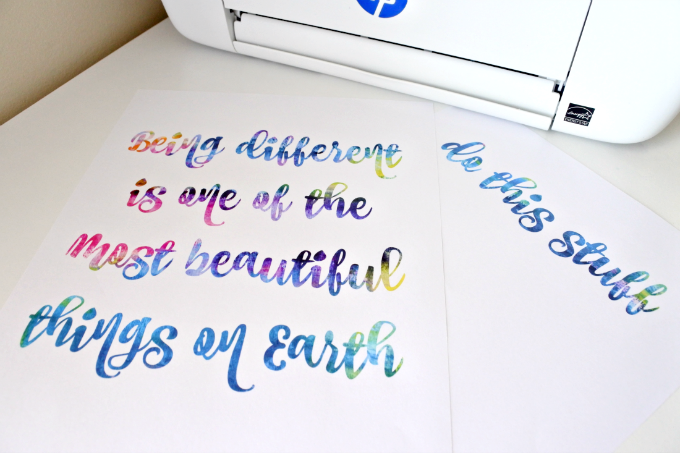 Being different
is one of the
most beautiful
things on Earth
do this stuff
hp